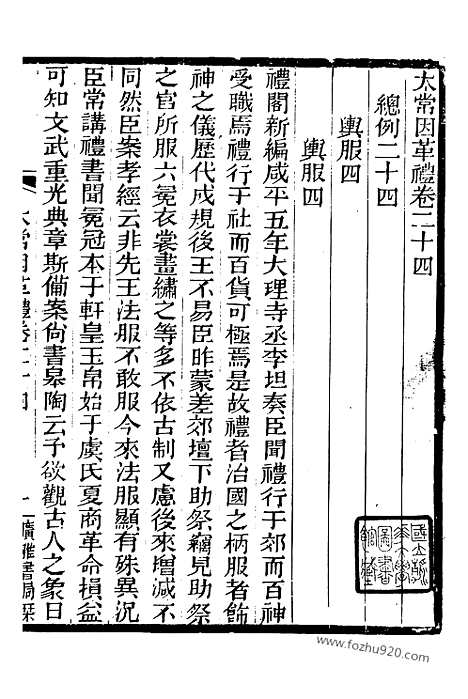 太常因革禮卷二十四
總例二十四
輿服四
輿服四
禮閣新編咸平五年大理寺丞李坦奏臣聞禮行于郊而百神
受職焉禮行于社而百貨可極焉是故禮者治國之柄服者飾
神之儀歷代成規後王不易臣昨蒙差郊壇下助祭竊見助祭
之官所服六冕衣裳畫繡之等多不依古制又慮後來增減不
同然臣案孝經云非先王法服不敢服今來法服顯有殊異況
臣常講禮書聞冕冠本于軒皇玉帛始于虞氏夏商革命損益
可知文武重光典章斯備案尙書皋陶云予欲觀古人之象日
太常因革禮卷二十四
一
廣雅書局栞
www.fozhu920.com